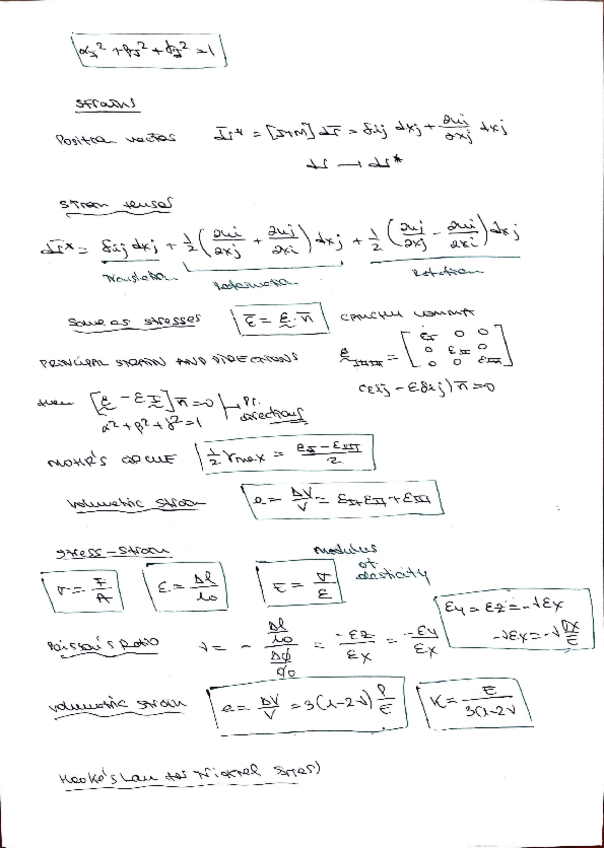 α_I² + β_I² + γ_I² = 1
Strains
Position vector dr* = [I+M] dr = δij dxj + ∂ui/∂xj dxj
dr → dr*
Strain tensor
dr* = δij dxj + 1/2 (∂ui/∂xj + ∂uj/∂xi) dxj + 1/2 (∂ui/∂xj - ∂uj/∂xi) dxj
Translation Deformation Rotation
Same as stresses ε = ε · n CAUCHY
PRINCIPAL STRAIN AND DIRECTIONS ε I II III = [ε_I 0 0
0 ε_II 0
0 0 ε_III]
then [ε - εI] n = 0 Pr. directions (εij - εδij) n = 0
α² + β² + γ² = 1
MOHR'S CIRCLE 1/2 γmax = (ε_I - ε_III)/2
Volumetric strain e = ΔV/V = ε_I + ε_II + ε_III
Stress-Strain Modulus of elasticity
σ = F/A ε = Δl/lo E = σ/ε
εy = εz = -νεx
-νεx = -ν σx/E
Poisson's Ratio ν = - (Δl/lo)/(Δφ/φo) = -εz/εx = -εy/εx
Volumetric strain e = ΔV/V = 3(1-2ν) P/E K = E/3(1-2ν
Hooke's Law for Triaxial Stress)